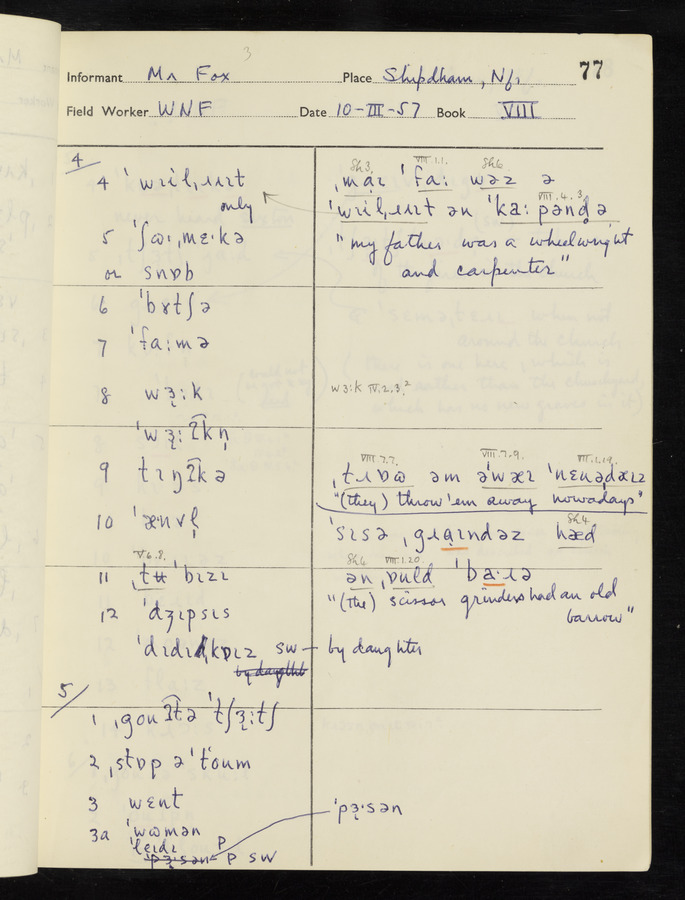 3
Informant Mr Fox Place Shipdham, Nf. 77
Field Worker WNF Date 10-III-57 Book VIII
4/
4 ˈwɪilˌɹɹɪt
only
5 ˈʃɷːˌmɛˑkə
or snɒb
6 ˈbɤtʃə
7 ˈfaːmə
8 wɜ̨ːk
ˈwɜ̨ːʔkn̩
9 tɪŋʔkə
10 ˈænvl̩
V.6.8.
11 ˌtʉ ˈbɪzɪ
12 ˈdʒɪpsɪs
ˈdɪdɪˌkɒɪz SW – by daughter
5/
1 ˌgouʔtə ˈtʃɜ̨ːtʃ
2 ˌstɒp əˈtoum
3 wɛnt
3a ˈwɷmən
ˈleɪdɪ P
ˈpɜ̨ˑsən P SW
Sh3. VIII.1.1. Sh6
ˌmaɪ ˈfaː wəz ə
VIII.4.3.
ˈwɪilˌɹɹɪt ən ˈkaːpəndə
"my father was a wheelwright
and carpenter"
wɜːk IV.2.3.²
VIII.7.7. VIII.7.9. VII.1.19.
ˌtɹɒɷ əm əˈwæɪ ˈnɛuədæɪz
"(they) throw 'em away nowadays"
Sh4.
ˈsɪsə ˌgɹaɪndəz hæd
Sh4 VIII.1.20.
ən ˌɒuld ˈbaˑɹə
"(the) scissor grinders had an old
barrow"
ˈpɜ̨ˑsən